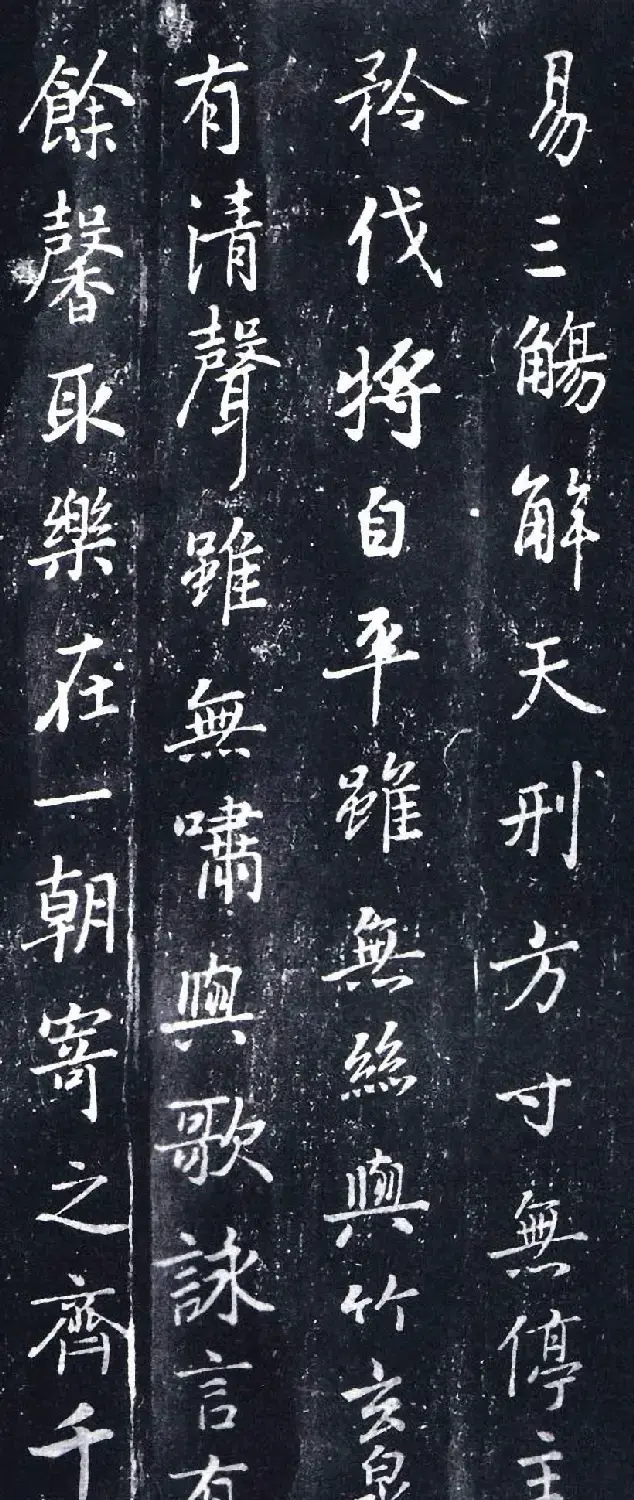 易三觴解天刑方寸無停主
矜伐將自平雖無絲與竹玄泉
有清聲雖無嘯與歌詠言有
餘馨取樂在一朝寄之齊千